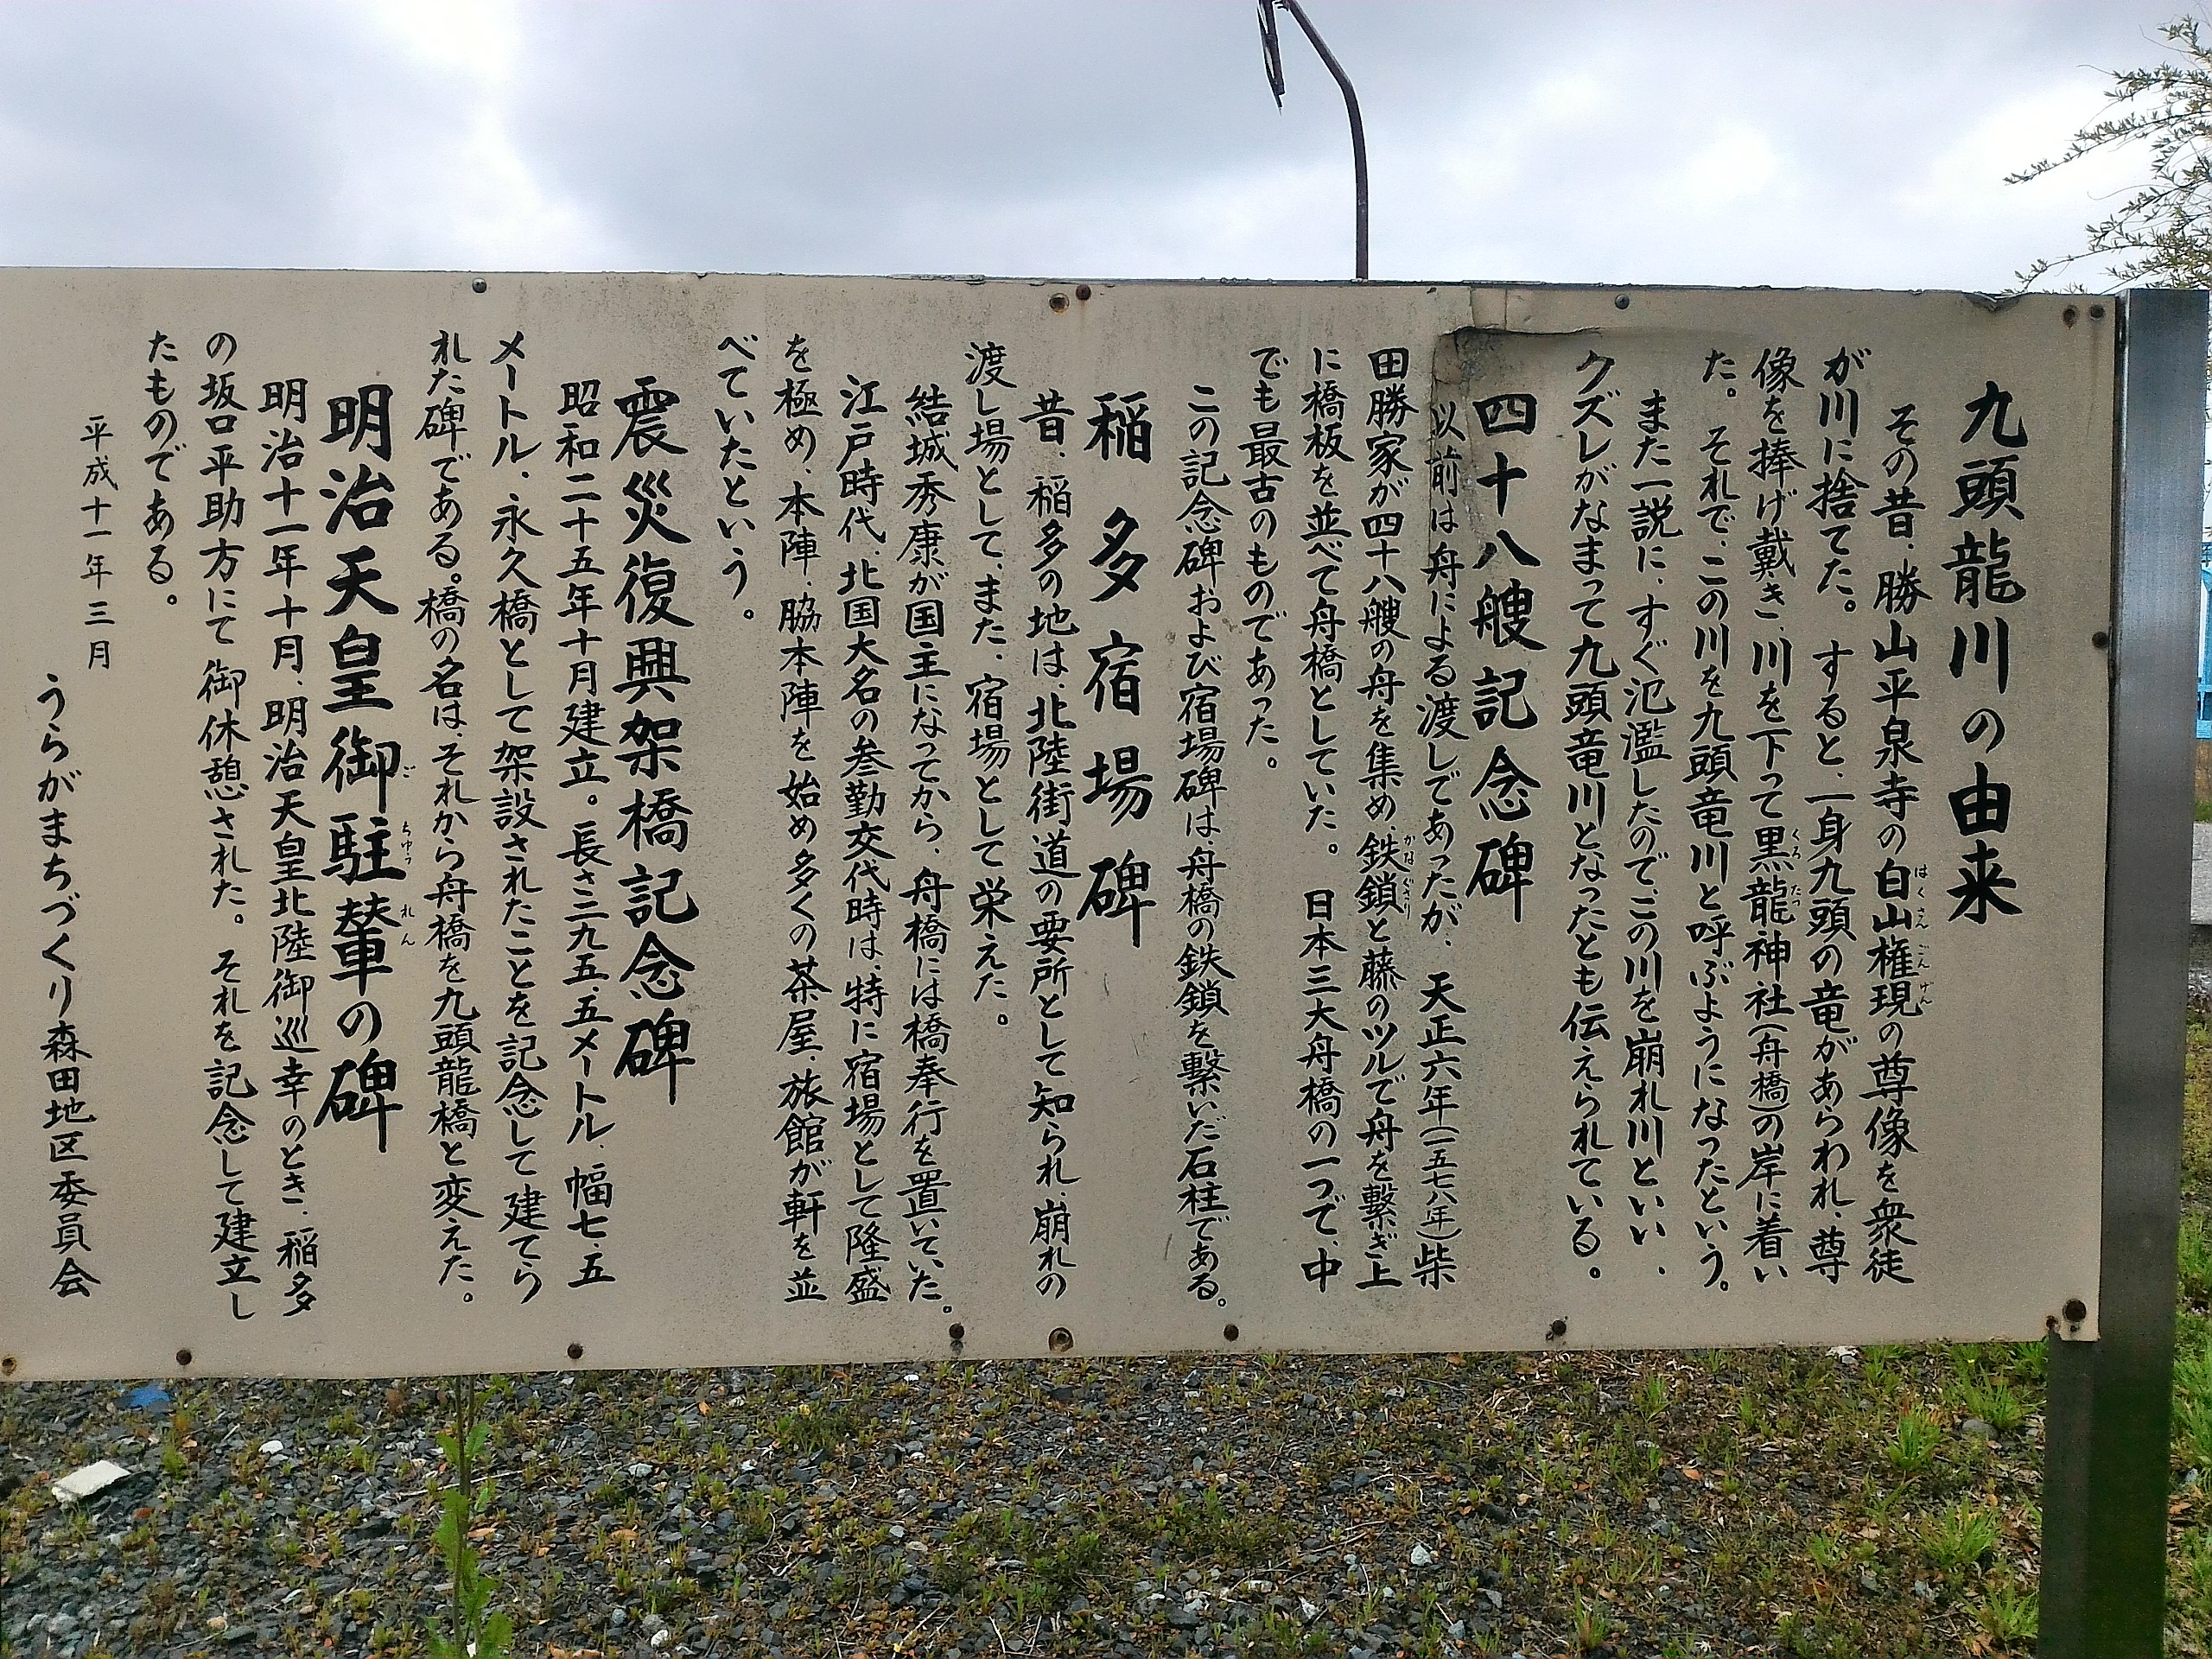 九頭龍川の由来
その昔、勝山平泉寺の白山権現の尊像を衆徒
が川に捨てた。すると、一身九頭の竜があらわれ、尊
像を捧げ戴き、川を下って黒龍神社(舟橋)の岸に着い
た。それで、この川を九頭竜川と呼ぶようになったという。
また一説に、すぐ氾濫したので、この川を崩れ川といい、
クズレがなまって九頭竜川となったとも伝えられている。
四十八艘記念碑
以前は舟による渡しであったが、天正六年(一五七八年)柴
田勝家が四十八艘の舟を集め、鉄鎖と藤のツルで舟を繋ぎ上
に橋板を並べて舟橋としていた。日本三大舟橋の一つで、中
でも最古のものであった。
この記念碑および宿場碑は、舟橋の鉄鎖を繋いだ石柱である。
稲多宿場碑
昔、稲多の地は、北陸街道の要所として知られ、崩れの
渡し場として、また、宿場として栄えた。
結城秀康が国主になってから、舟橋には橋奉行を置いていた。
江戸時代、北国大名の参勤交代時は、特に宿場として隆盛
を極め、本陣、脇本陣を始め多くの茶屋、旅館が軒を並
べていたという。
震災復興架橋記念碑
昭和二十五年十月建立。長さ三九五.五メートル、幅七.五
メートル、永久橋として架設されたことを記念して建てら
れた碑である。橋の名は、それから舟橋を九頭龍橋と変えた。
明治天皇御駐輦の碑
明治十一年十月、明治天皇北陸御巡幸のとき、稲多
の坂口平助方にて御休憩された。それを記念して建立し
たものである。
平成十一年三月
うらがまちづくり森田地区委員会